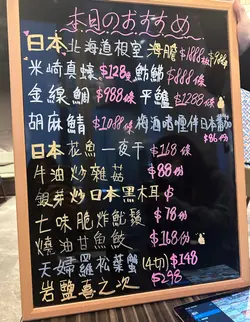 本日のおすすめ
日本北海道根室海膽$1888板$988
米崎真蠔$128隻 魴鮄$888條
金線鯛$988條 平鱸$1288條
胡麻鯖$1088條 梅酒啫喱伴日本蕃茄
$86
日本花魚一夜干 $168條
牛油炒雜菇 $88份
銀芽炒日本黑木耳 $
七味脆炸魷鬚 $78份
燒油甘魚鮫 $168份
天婦羅松葉蟹(4切)$148
岩鹽喜之次 $298